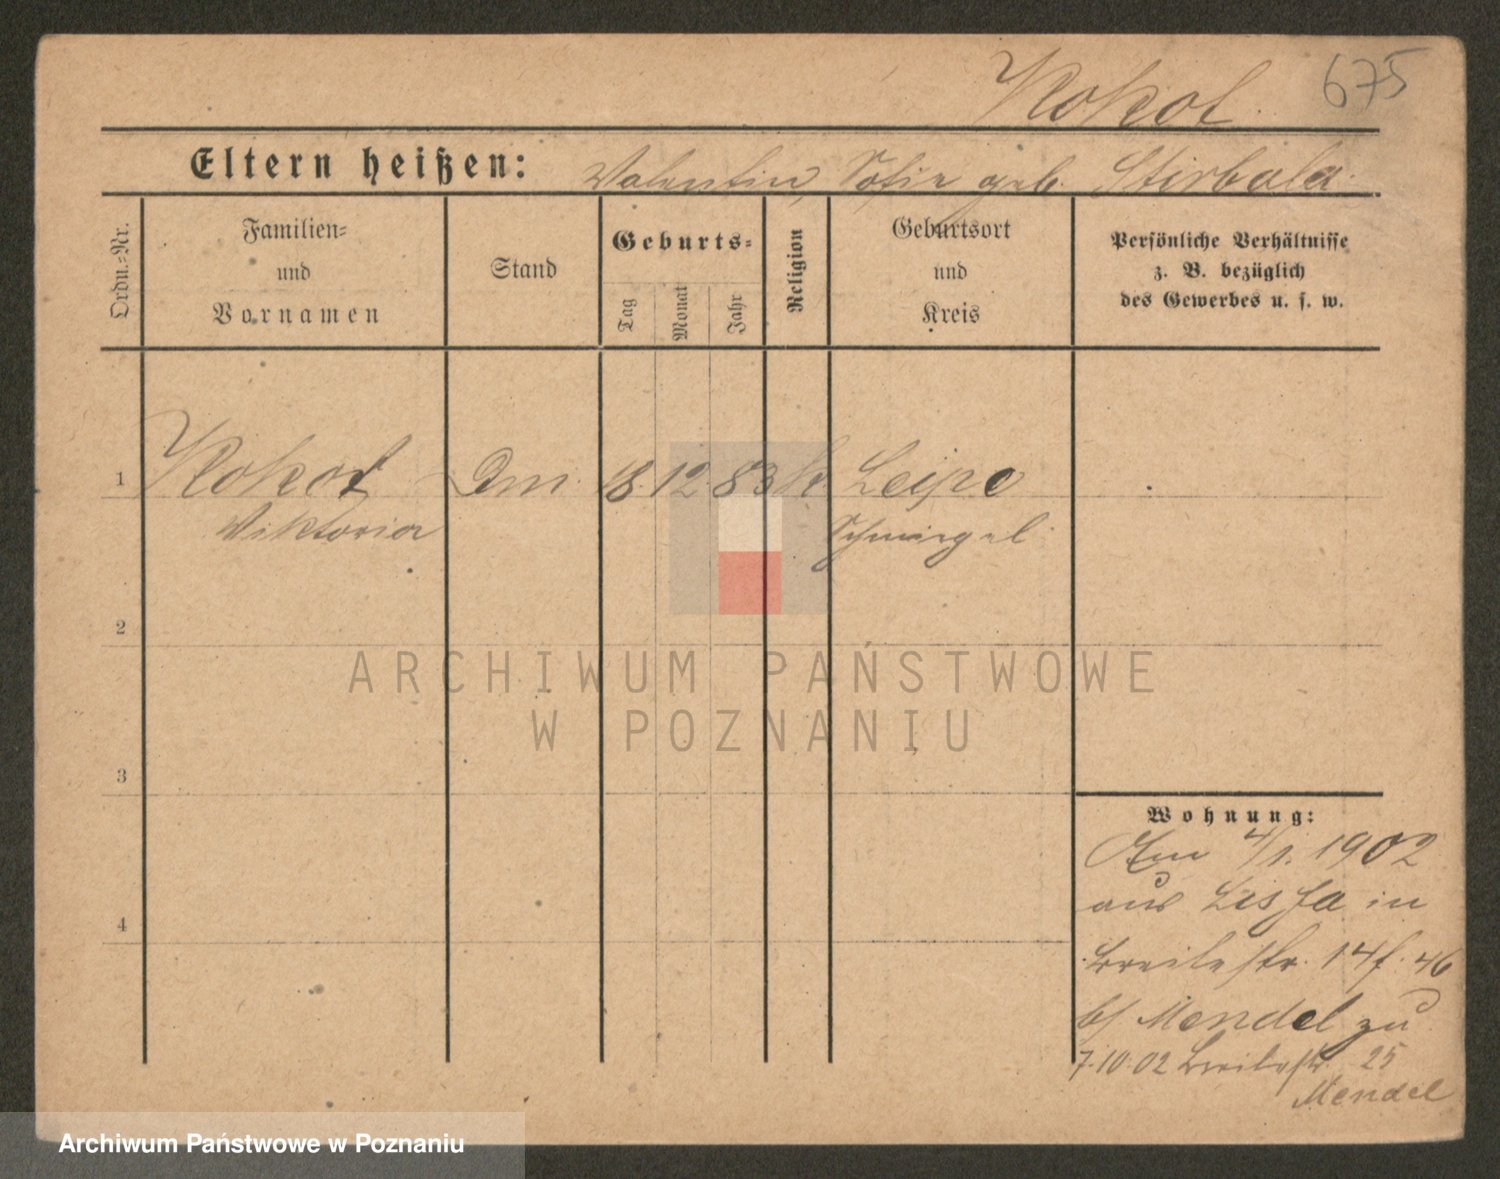 Kokot 675
Eltern heißen: Valentin, Sofie geb. Stirbala
Ordn.-Nr.
Familien-
und
Vornamen
Stand
Geburts-
Tag
Monat
Jahr
Religion
Geburtsort
und
Kreis
Persönliche Verhältnisse
z. B. bezüglich
des Gewerbes u. s. w.
1 Kokot Dm. 18. 12. 83 k Leipe
Viktoria Schmiegel
2
3
4
Wohnung:
Am 4/1. 1902
aus Lissa in
Breitestr. 14 f. 46
b/ Mendel zu
7.10.02 Breitestr. 25
Mendel
ARCHIWUM PAŃSTWOWE
W POZNANIU
Archiwum Państwowe w Poznaniu